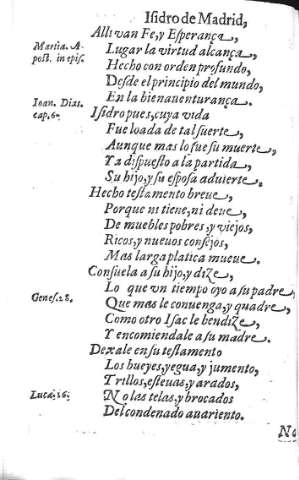 Isidro de Madrid,
Alli van Fe, y Esperança,
Lugar la virtud alcança,
Hecho con orden profundo,
Desde el principio del mundo,
En la bienauenturança.
Isidro pues, cuya vida
Fue loada de tal suerte,
Aunque mas lo fue su muerte,
Ya dispuesto a la partida,
Su hijo, y su esposa aduierte.
Hecho testamento breue,
Porque ni tiene, ni deue,
De muebles pobres, y viejos,
Ricos, y nueuos consejos,
Mas larga platica mueue.
Consuela a su hijo, y dize,
Lo que vn tiempo oyo a su padre,
Que mas le conuenga, y quadre,
Como otro Isac le bendize,
Y encomiendale a su madre.
Dexale en su testamento
Los bueyes, yegua, y jumento,
Trillos, esteuas, y arados,
No las telas, y brocados
Del condenado auariento.
No
Martia. A-
post. in epis.
Ioan. Dias.
cap. 6.
Genes. 28.
Luca. 16.